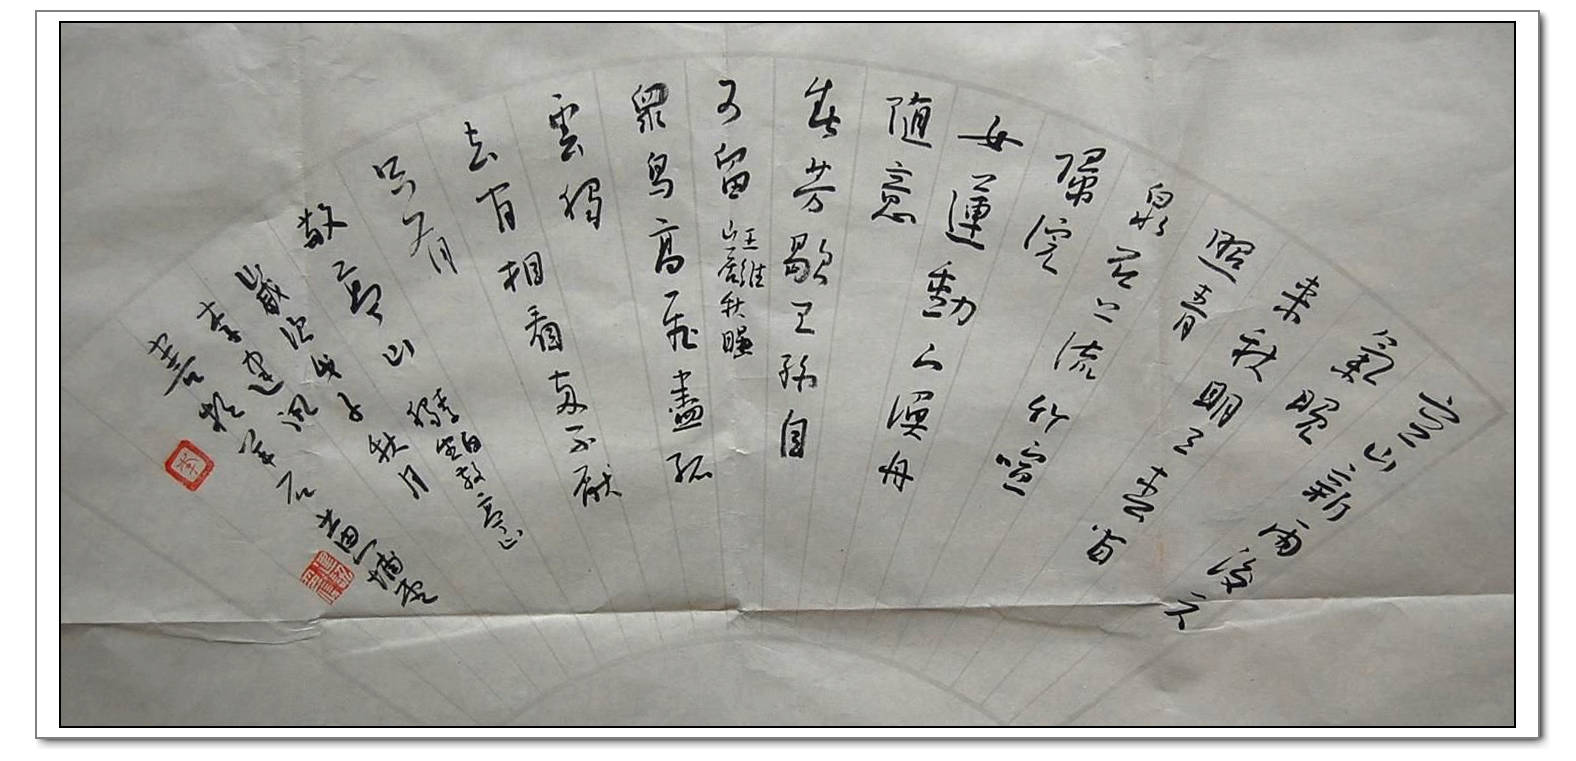 空山新雨後天
氣晚
來秋明月松間
照清
泉石上流竹喧
歸浣
女蓮動下漁舟
隨意
春芳歇王孫自
可留
王維
山居秋暝
眾鳥高飛盡孤
雲獨
去閒相看兩不厭
只有
敬亭山
李白
獨坐敬亭山
歲次戊子秋月
李建
書於羊石